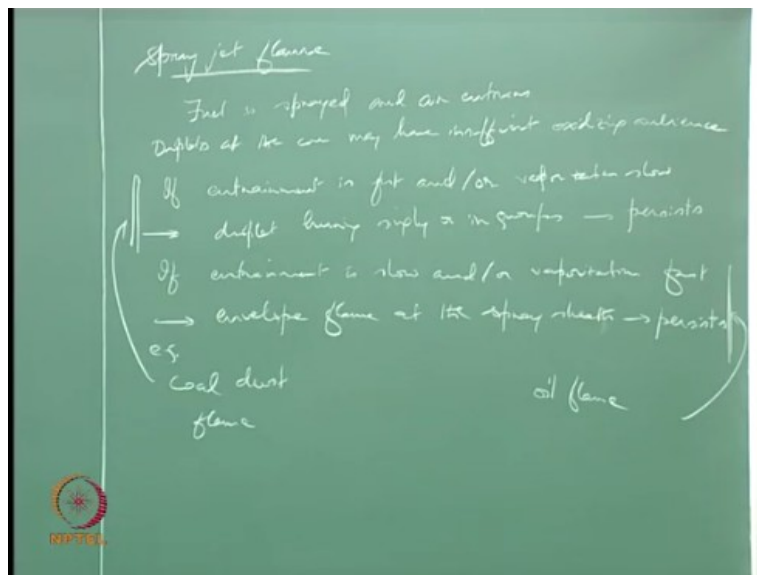 Spray jet flame
Fuel is sprayed and air entrains
Droplets at the core may have insufficient oxidizing ambience
If entrainment is fast and/or vaporization slow
→ droplet burning singly or in groups → persists
If entrainment is slow and/or vaporization fast
→ envelope flame at the spray sheath → persists
e.g.
coal dust flame
oil flame
NPTEL